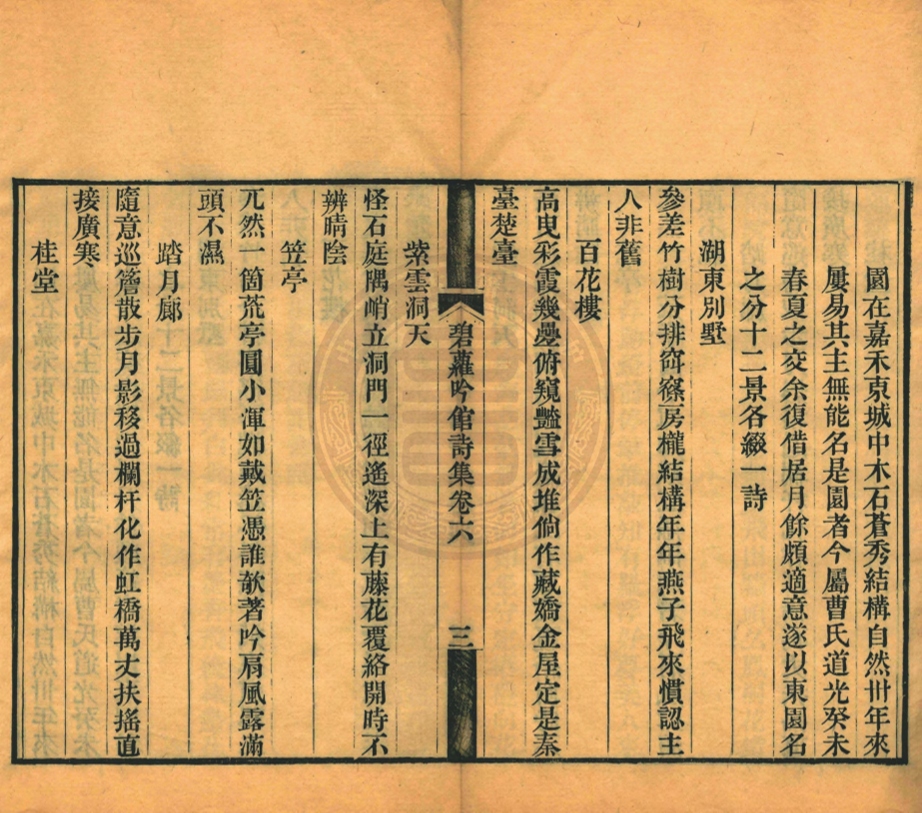 園在嘉禾東城中木石蒼秀結構自然卅年來
屢易其主無能名是園者今屬曹氏道光癸未
春夏之交余復借居月餘頗適意遂以東園名
之分十二景各綴一詩
湖東別墅
參差竹樹分排窅窱房櫳結構年年燕子飛來慣認主
人非舊
百花樓
高曳彩霞幾疊俯窺豔雪成堆倘作藏嬌金屋定是秦
臺楚臺
碧蘿吟館詩集卷六
三
紫雲洞天
怪石庭隅峭立洞門一徑遙深上有藤花覆絡開時不
辨晴陰
笠亭
兀然一箇荒亭圓小渾如戴笠憑誰欹著吟肩風露滿
頭不濕
踏月廊
隨意巡簷散步月影移過欄杆化作虹橋萬丈扶搖直
接廣寒
桂堂